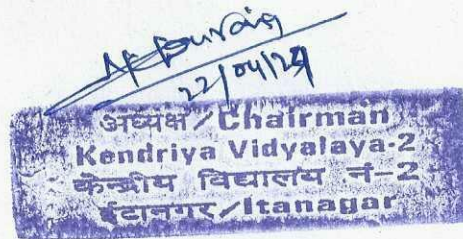 22/04/24
अध्यक्ष/Chairman
Kendriya Vidyalaya-2
केन्द्रीय विद्यालय नं-2
ईटानगर/Itanagar